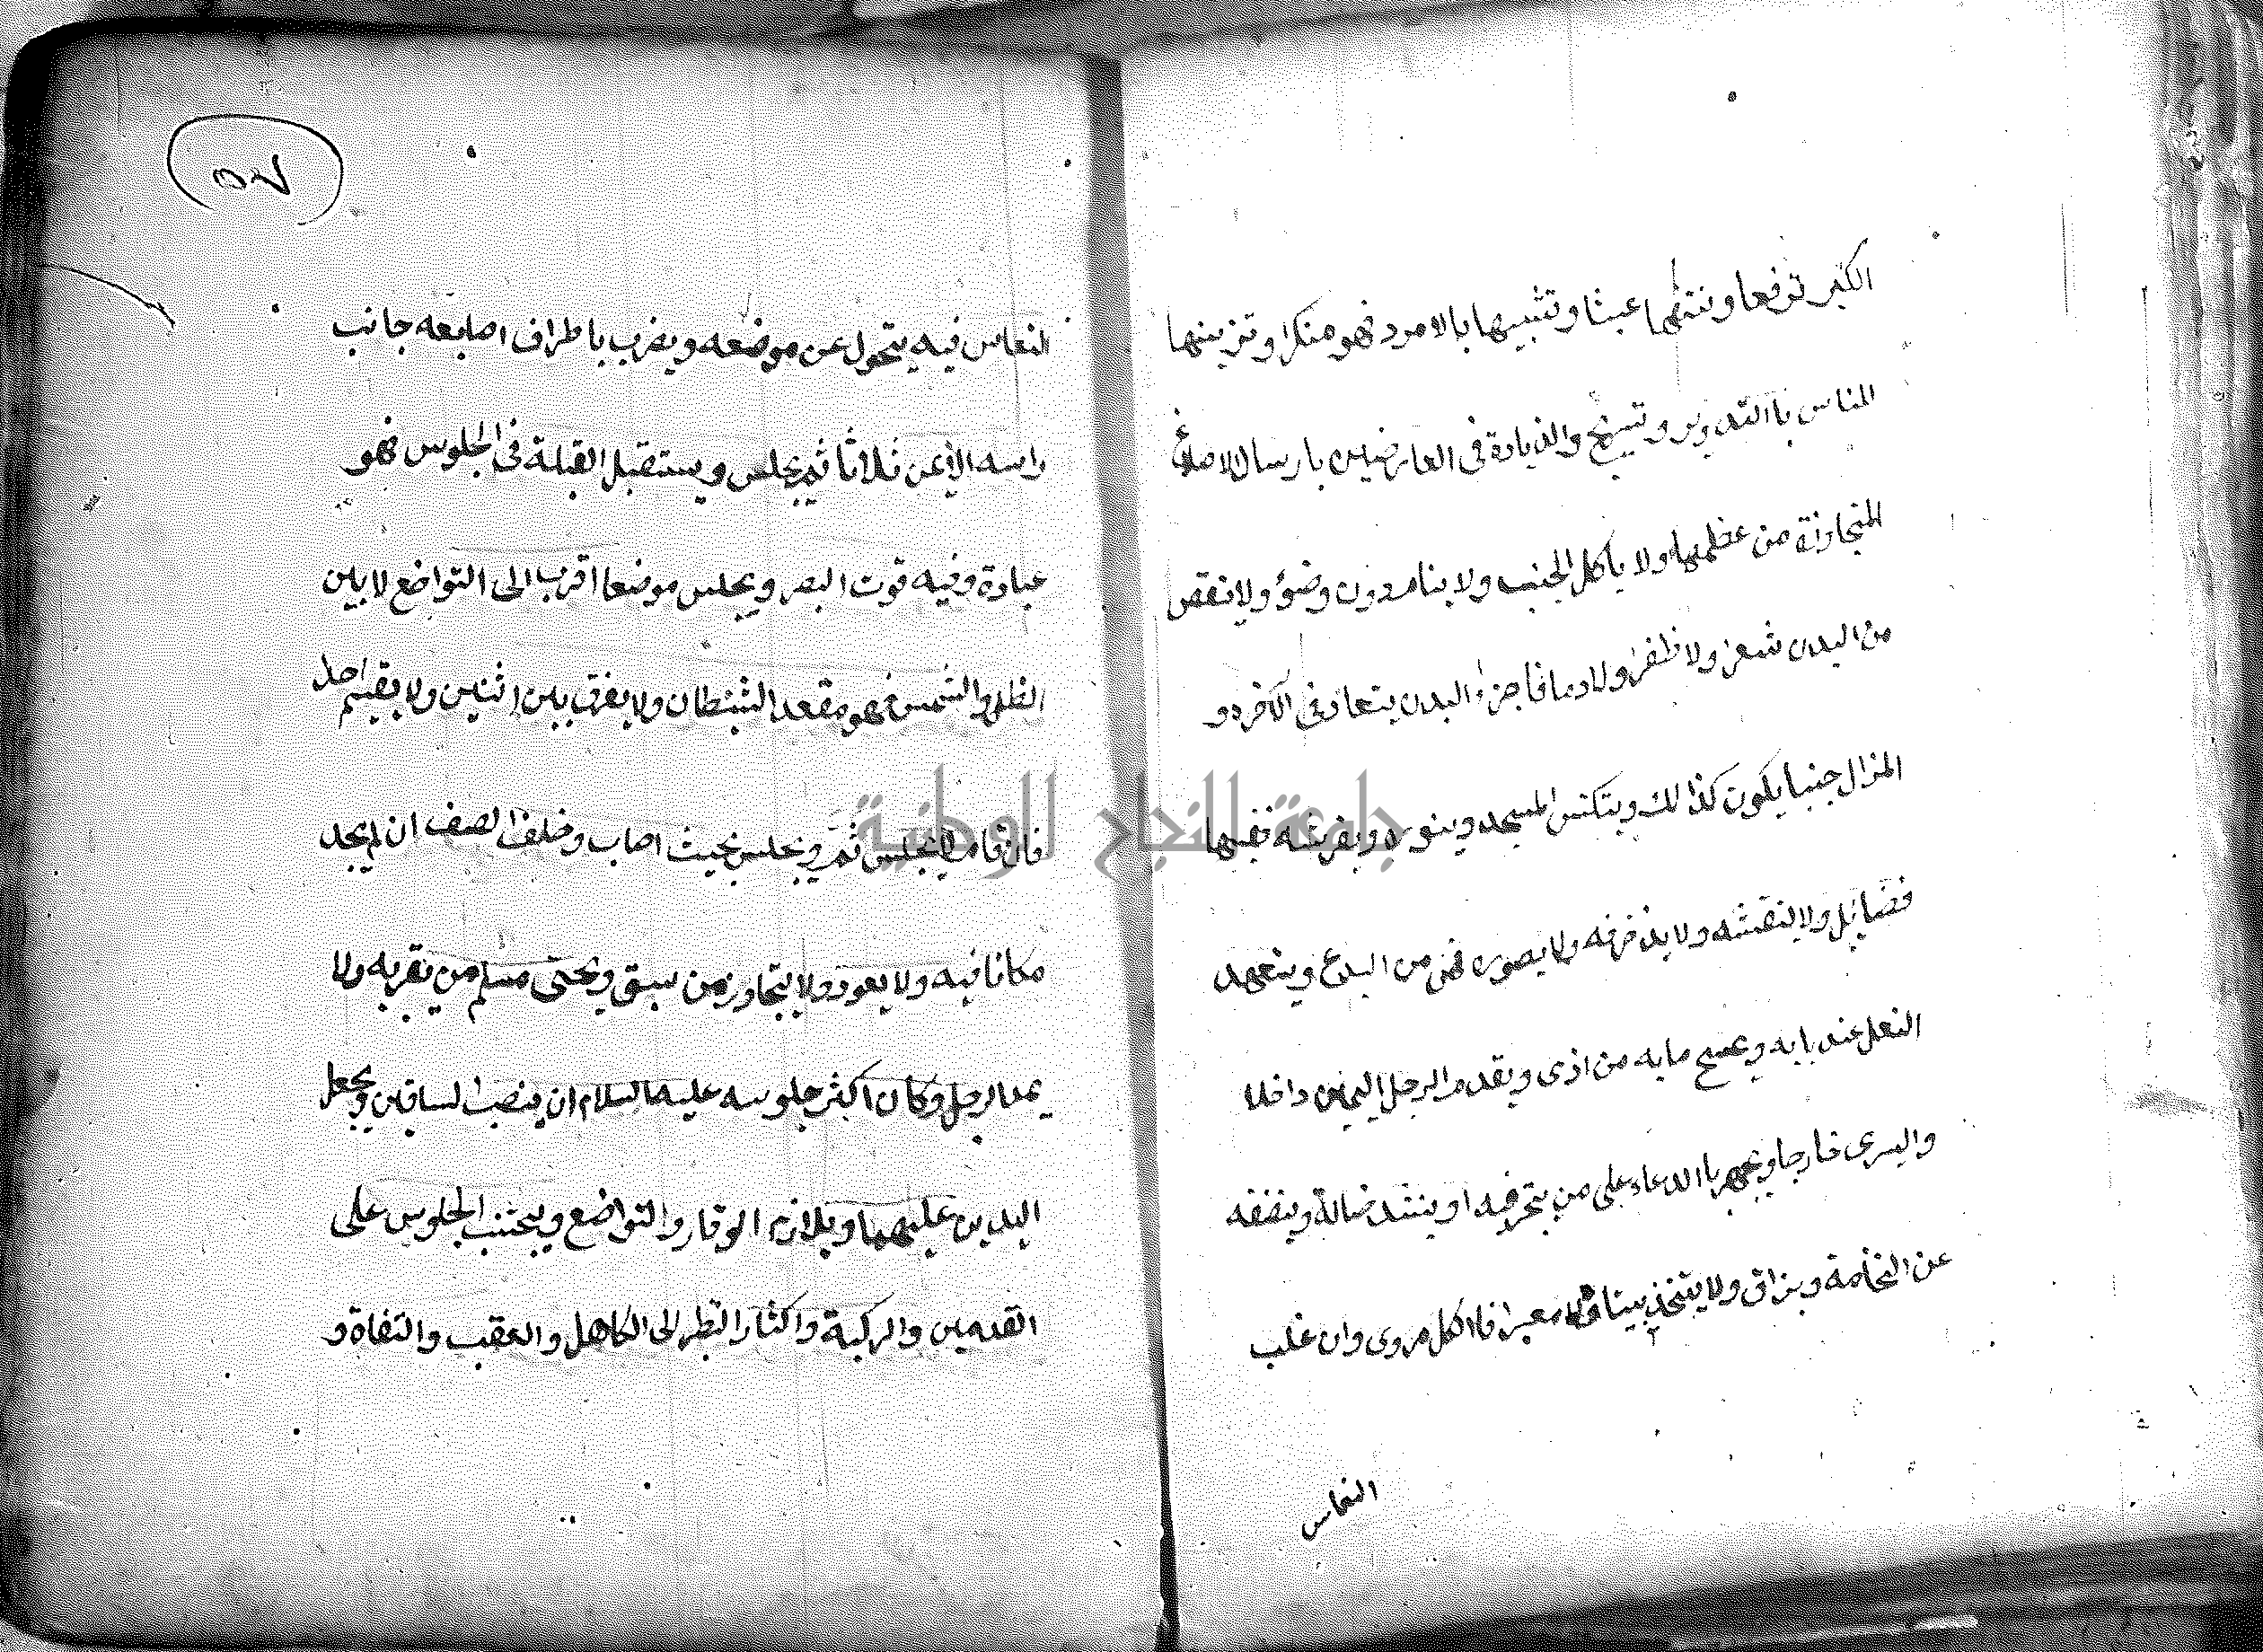 الكبر ترفعا ونتفها عبثا وتشبيها بالامرد فهو منكر وتزيينها
للناس باالتدوير وتسريح والزيادة في العارضين بارسال الاصداغ
المتجاوزة من عظمها ولا ياكل الجنب ولا ينام بدون وضؤ ولا ينقص
من البدن شعر ولا ظفر ولا دما فاجزاء البدن يتعاد في الآخرة و
المزال جنبا يكون كذالك ويتكنس المسجد وينوره ويفرشه ففيها
فضايل ولا ينقشه ولا يزخرفه ولا يصوره فهي من البدع ويتعهد
النعل عند بابه ويمسح مابه من اذى ويقدم الرجل اليمين داخلا
واليسرى خارجا ويجهر باالدعاء على من يتجر فيه او ينشد ضالة وينضفه
عن النخامة وبزاق ولا يتخذ بيتا ولا معبرا فاالكل مروى وان غلب
النعاس
النعاس فيه يتحول عن موضعه ويضرب باطراف اصابعه جانب
راسه الأيمن ثلاثا ثم يجلس ويستقبل القبلة في الجلوس فهو
عبادة وفيه قوت البصر ويجلس موضعا اقرب الى التواضع لا بين
الظل والشمس فهو مقعد الشيطان ولا يفرق بين اثنين ولا يقيم احد
فان قام لا يجلس ثم ويجلس بحيث اصاب وخلف الصف ان لم يجد
مكانا فيه ولا يعود ولا يتجاوز من سبق ويحتى مسلم من يقربه ولا
يمد الرجل وكان اكثر جلوسه عليه السلام ان ينصب الساقين ويجعل
اليدين عليهما ويلازم الوقار والتواضع ويجتنب الجلوس على
القدمين والركبة واكثار النظر الى الكاهل والعقب والتفاة و
جامعة النجاح الوطنية